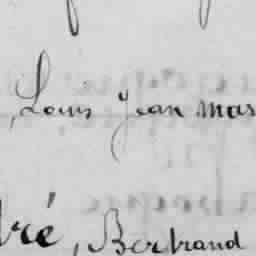 , Louis Jean mas
dré, Bertrand